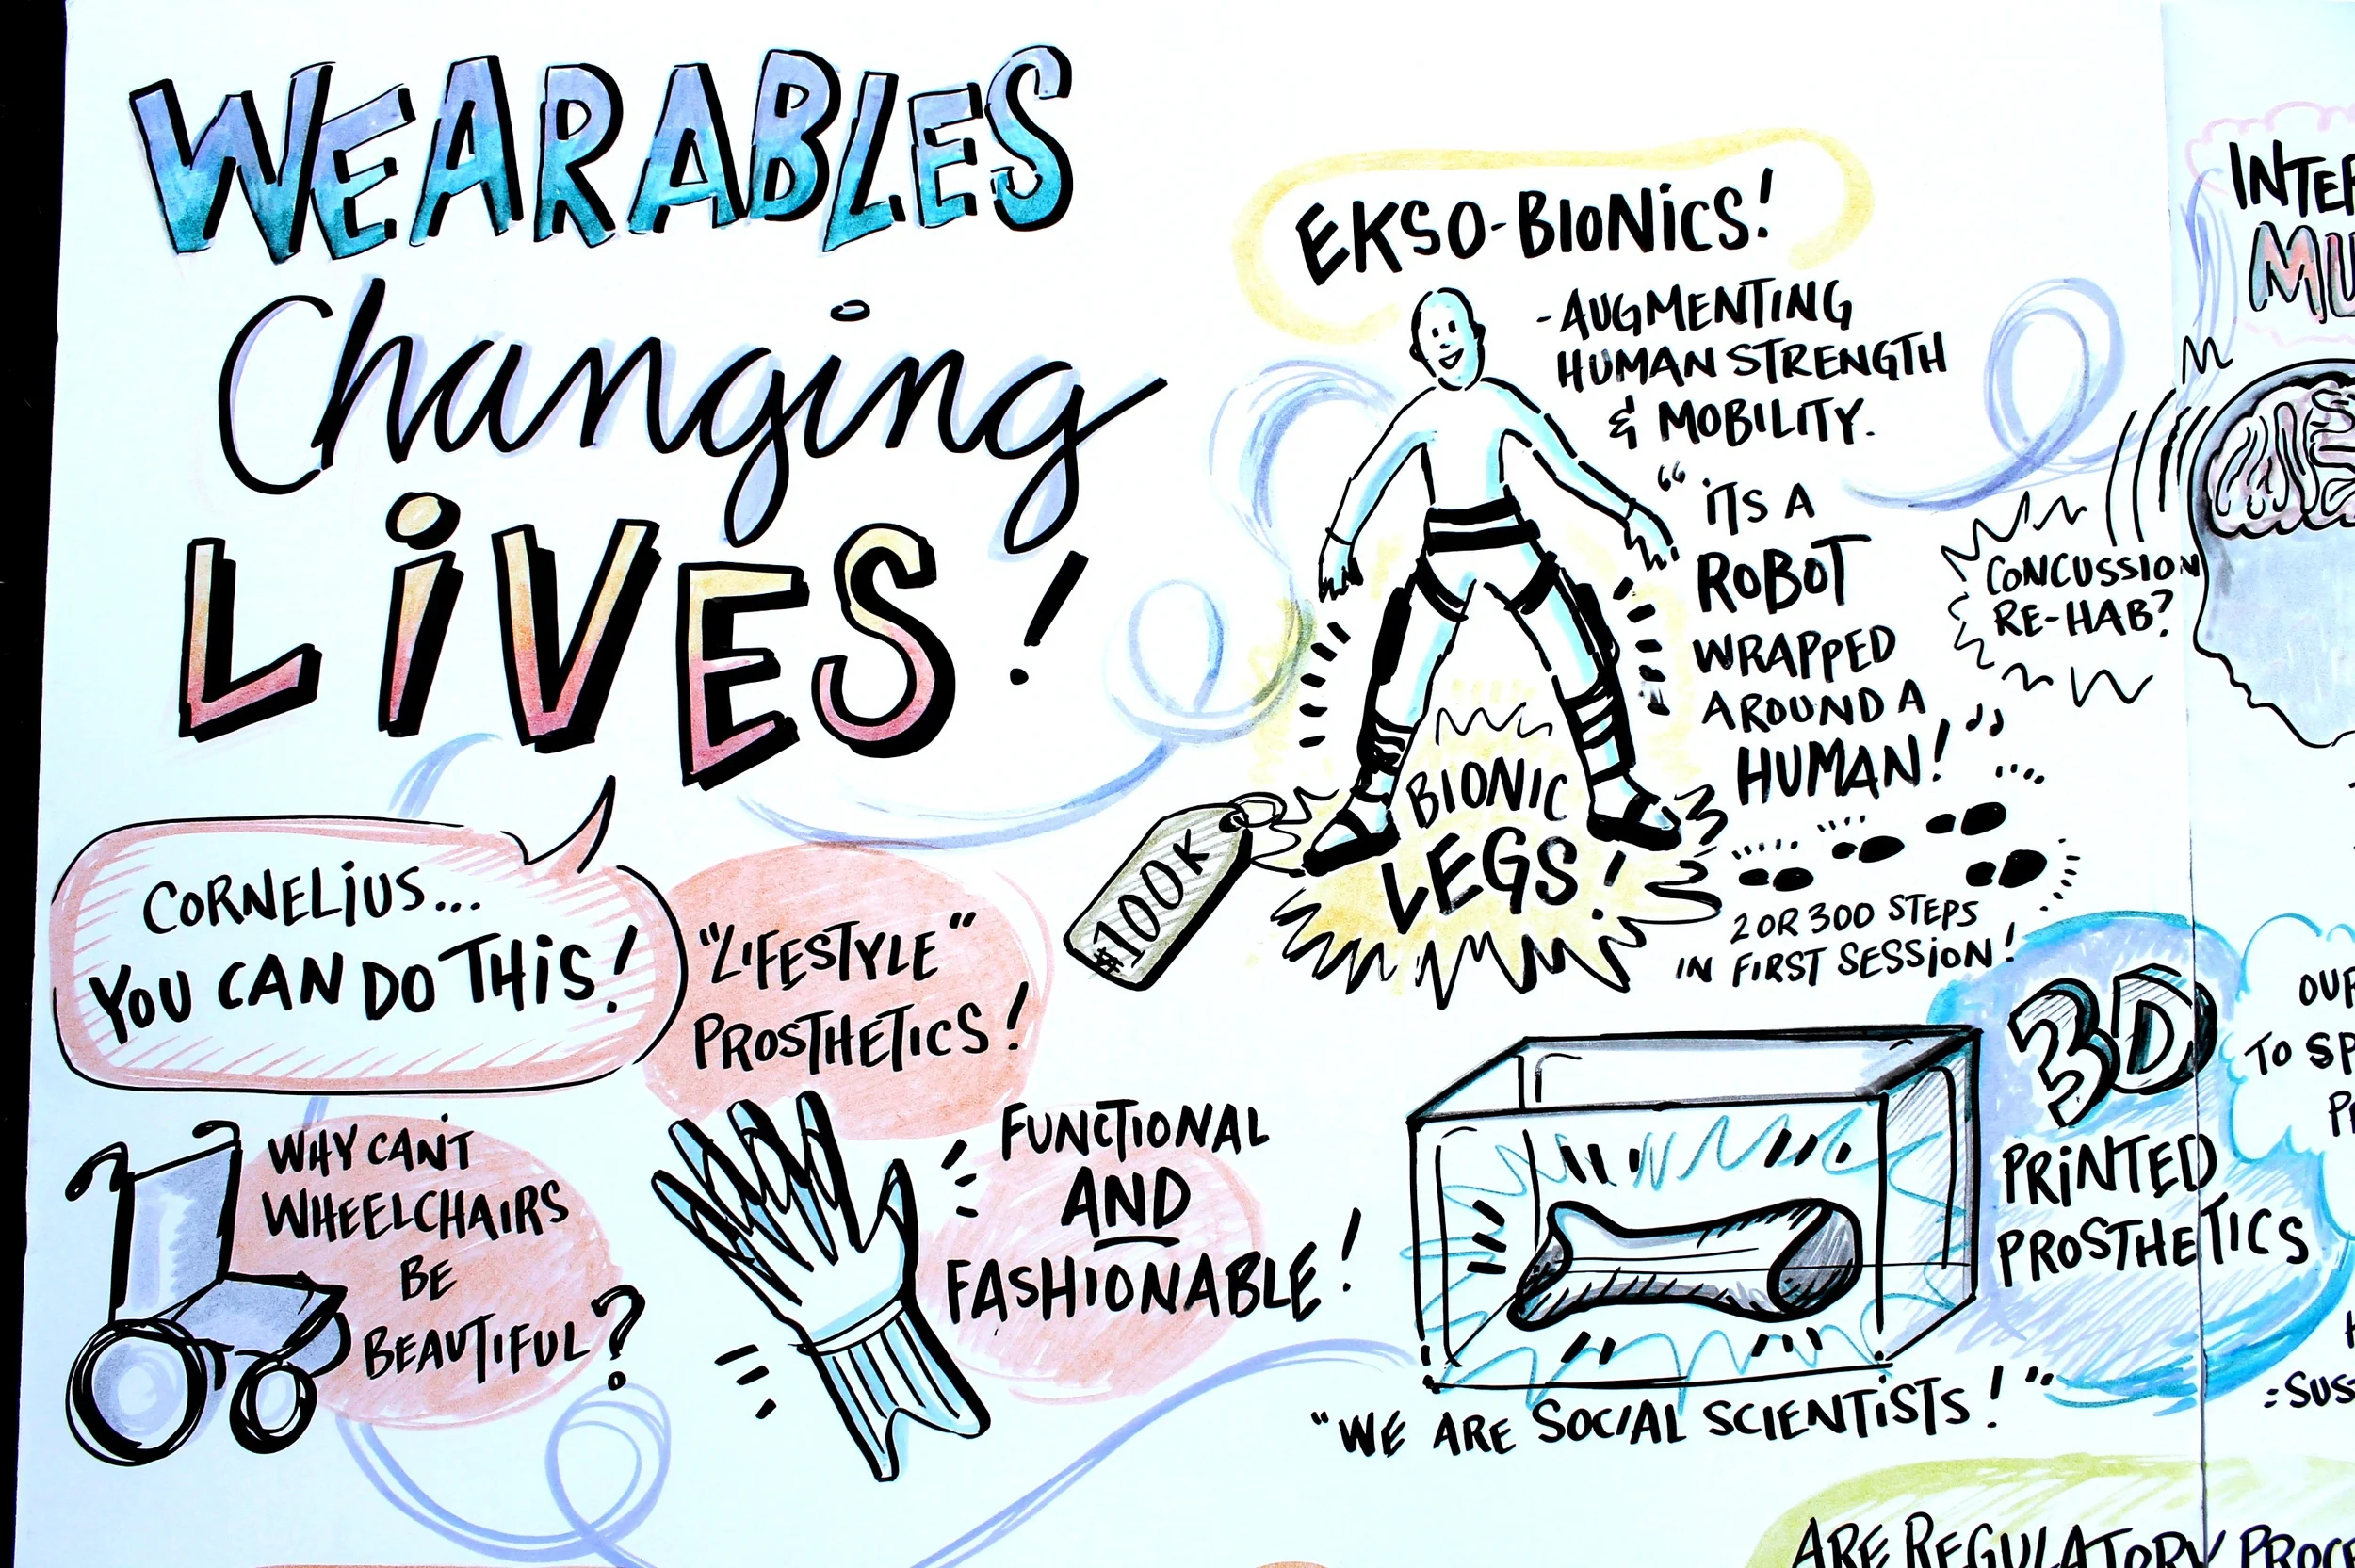 WEARABLES
Changing
LiVES!
CORNELiUS...
YOU CAN DO THiS!
"LIFESTYLE"
PROSTHETICS!
WHY CAN'T
WHEELCHAIRS
BE
BEAUTIFUL?
FUNCTIONAL
AND
FASHIONABLE!
EKSO-BIONiCS!
-AUGMENTING
HUMAN STRENGTH
& MOBILITY.
"iTS A
ROBOT
WRAPPED
AROUND A
HUMAN!"
BIONIC
LEGS!
$100K
2 OR 300 STEPS
IN FIRST SESSiON!
3D
PRiNTED
PROSTHETICS
"WE ARE SOCIAL SCIENTiSTS!"
CONCUSSION
RE-HAB?
INTER
MU
OUR
TO SP
=SUST
ARE REGULATORY PROCE